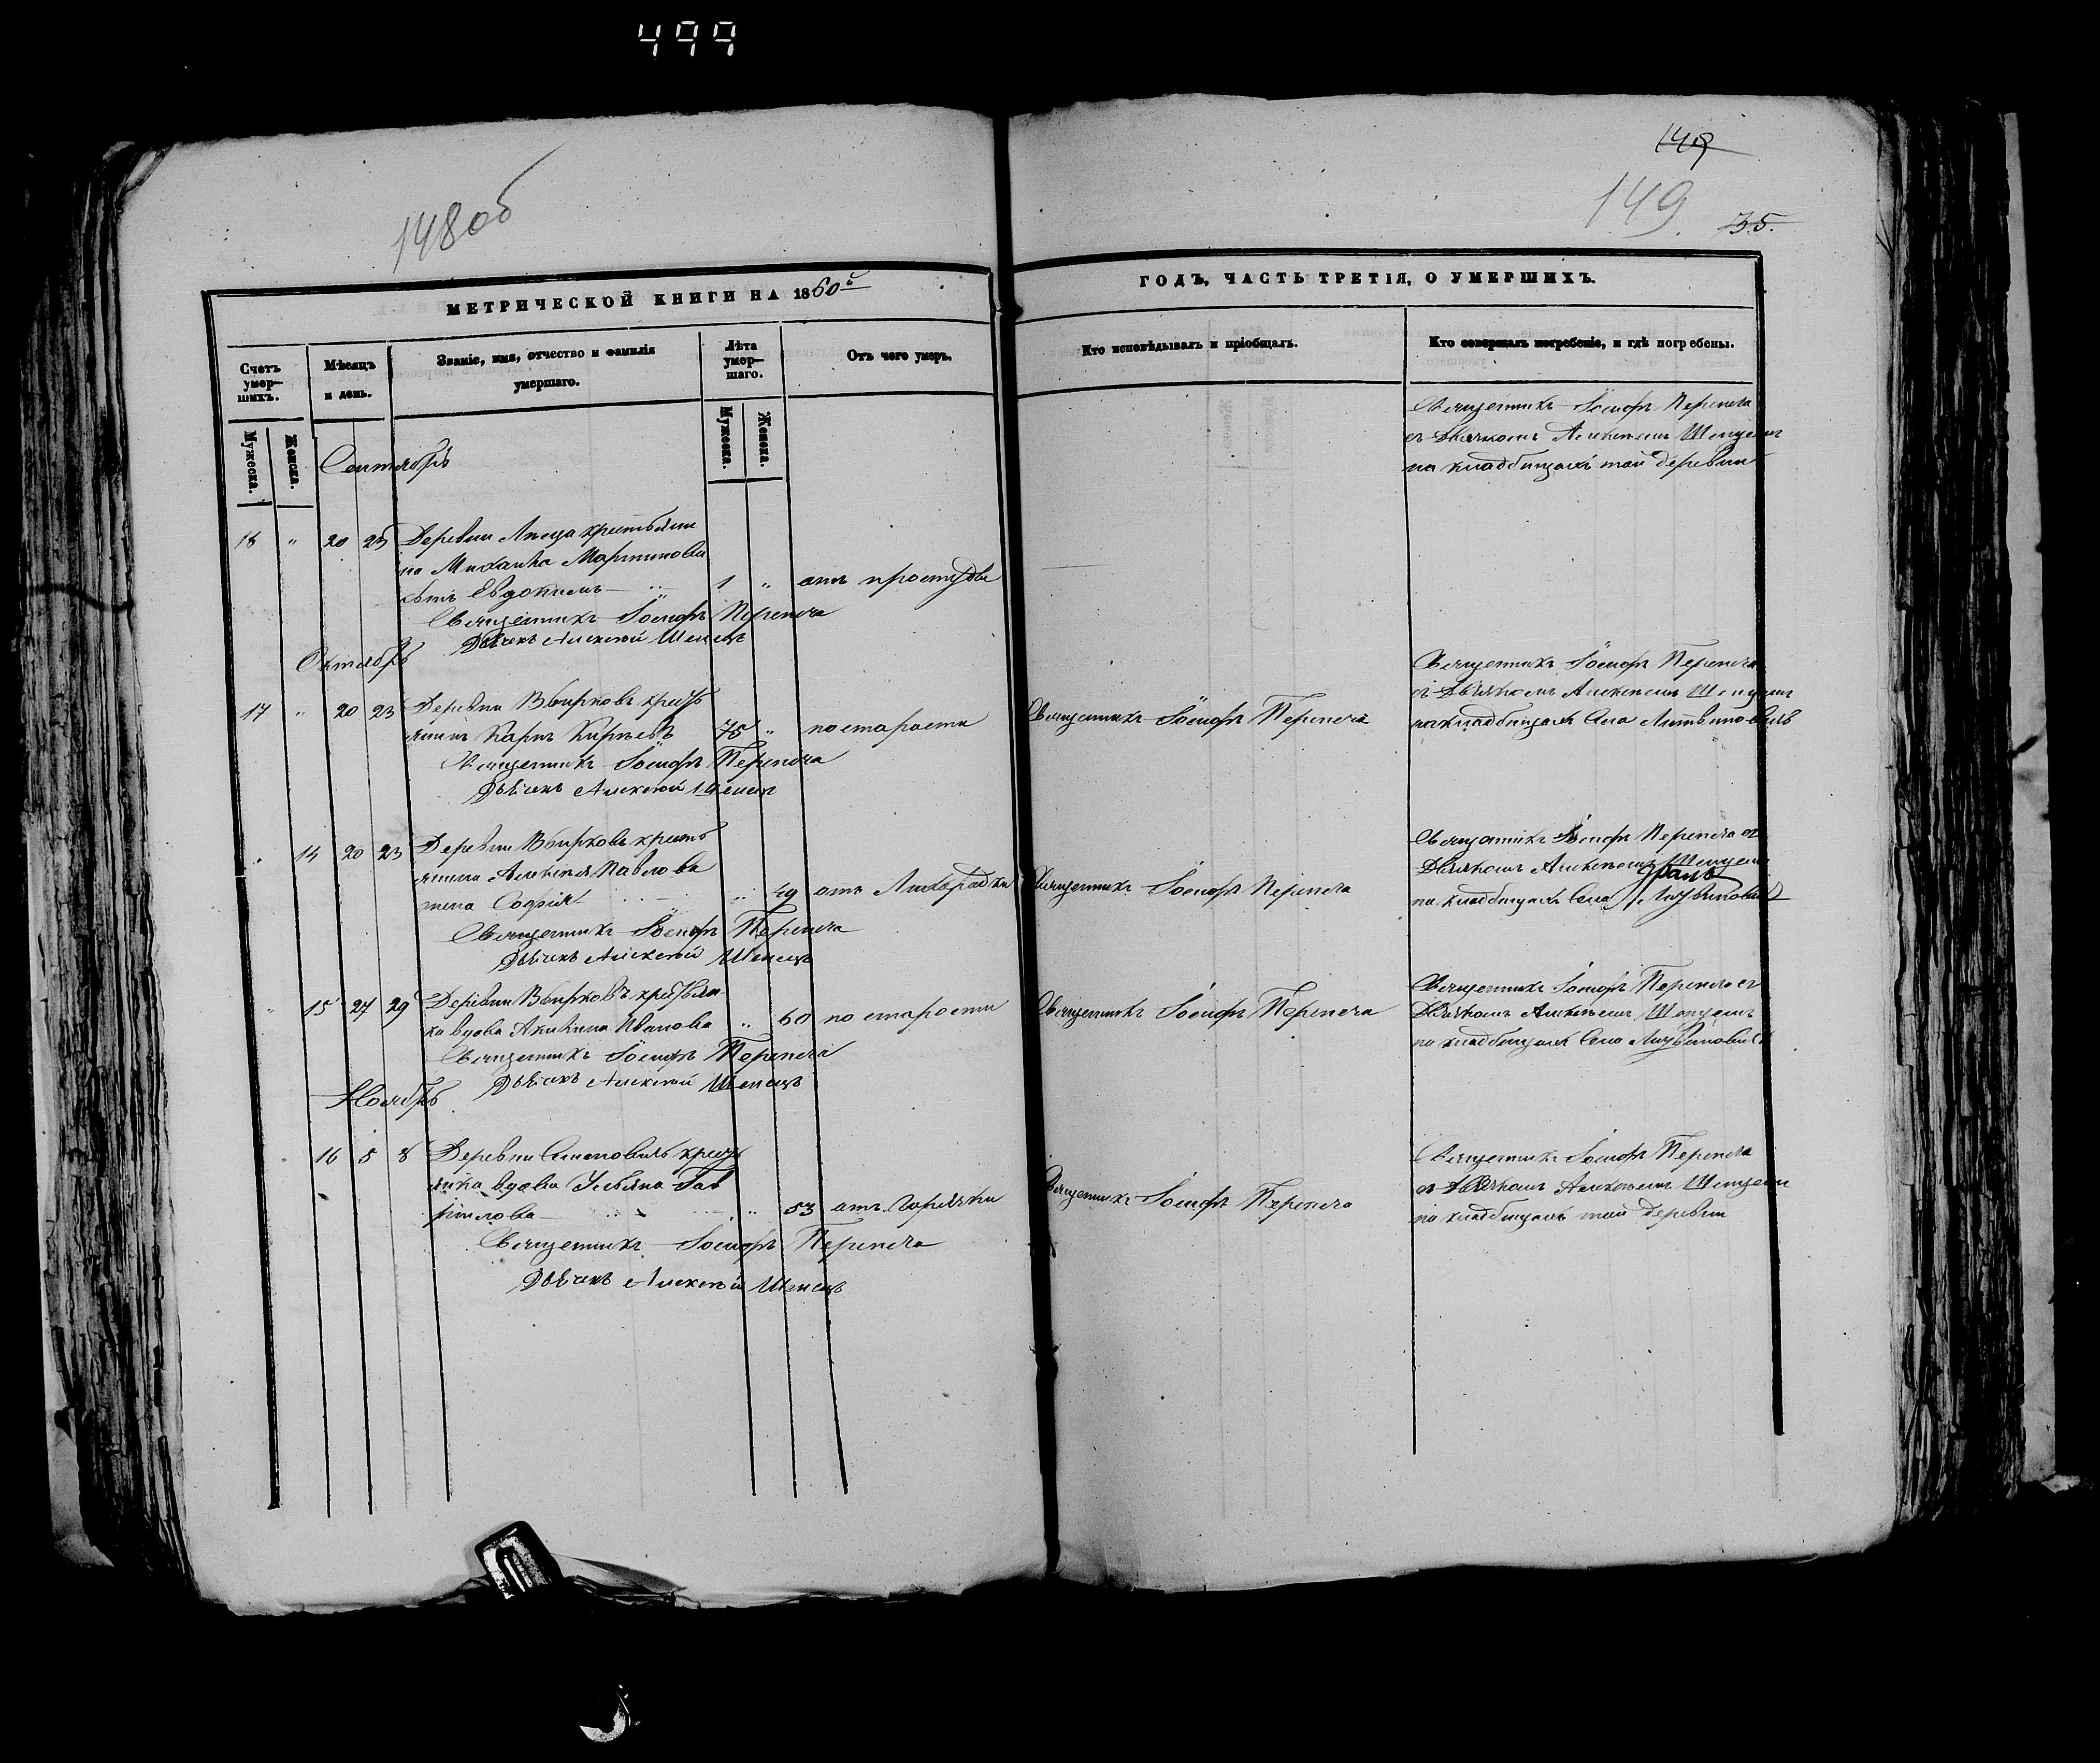 499
148 об
149
149.
35.
МЕТРИЧЕСКОЙ КНИГИ НА 1860й
ГОДЪ, ЧАСТЬ ТРЕТІЯ, О УМЕРШИХЪ.
Счетъ умер-шихъ.
Мѣсяцъ и день.
Званіе, имя, отчество и фамилія умершаго.
Лѣта умер-шаго.
Отъ чего умеръ.
Кто исповѣдывалъ и пріобщалъ.
Кто совершалъ погребеніе, и гдѣ погребены.
Мужеска.
Женска.
Мужеска.
Женска.
Сентябрь
Священникъ Іосифъ Перепеча
съ Дьячкомъ Алексѣемъ Шепцемъ
на кладбищахъ той деревни
16 " 20 23 Деревни крестьяни
на Михаила Мартинова
сынъ Евдокимъ 1 " отъ простуды
Священникъ Іосифъ Перепеча
Дьячекъ Алексѣй Шепецъ
Октябрь
Священникъ Іосифъ Перепеча
съ Дьячкомъ Алексѣемъ Шепцемъ
на кладбищахъ села Литвиновичь
17 " 20 23 Деревни Вбирковъ кресть
янинъ Карпъ 75 " по старости Священникъ Іосифъ Перепеча
Священникъ Іосифъ Перепеча
Дьячекъ Алексѣй Шепецъ
14 20 23 Деревни Вбирковъ кресть
янина Алексѣя Павлова
жена Софія " 49 отъ Лихорадки Священникъ Іосифъ Перепеча
Священникъ Іосифъ Перепеча съ
Дьячкомъ Алексѣемъ Шепцемъ
на кладбищахъ села Литвиновичь
Священникъ Іосифъ Перепеча
Дьячекъ Алексѣй Шепецъ
" 15 27 29 Деревни Вбирковъ крестьян
ка вдова Акилина Иванова " 60 по старости Священникъ Іосифъ Перепеча
Священникъ Іосифъ Перепеча съ
Дьячкомъ Алексѣемъ Шепцемъ
на кладбищахъ села Литвиновичь
Священникъ Іосифъ Перепеча
Дьячекъ Алексѣй Шепецъ
Ноябрь
16 5 8 Деревни кресть
янка вдова Ульяна Гав
рилова " 53 отъ горячки Священникъ Іосифъ Перепеча
Священникъ Іосифъ Перепеча
съ Дьячкомъ Алексѣемъ Шепцемъ
на кладбищахъ той деревни
Священникъ Іосифъ Перепеча
Дьячекъ Алексѣй Шепецъ